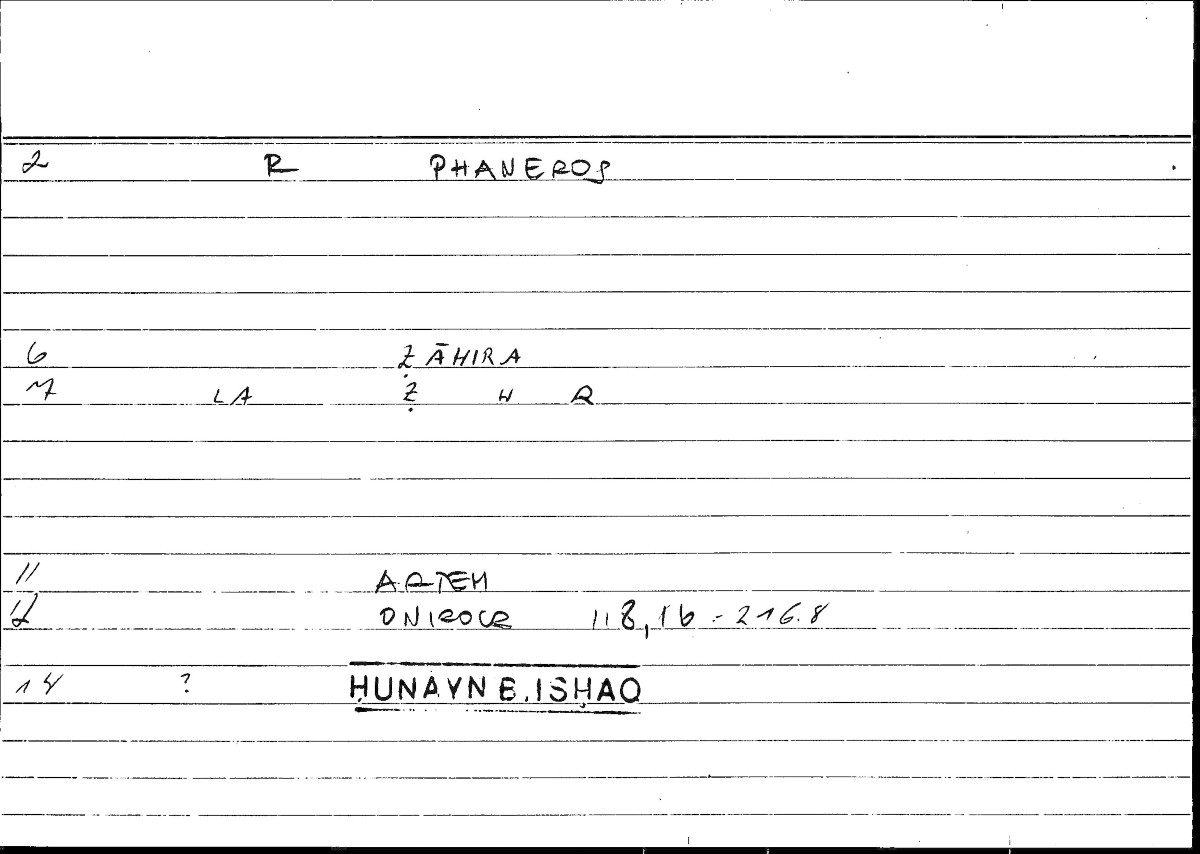 2 R PHANEROS
6 ẒĀHIRA
7 LA Ẓ H R
11 ARTEM
12 ONIROCR 118,16 - 216.8
14 ? ḤUNAYN B. ISḤAQ